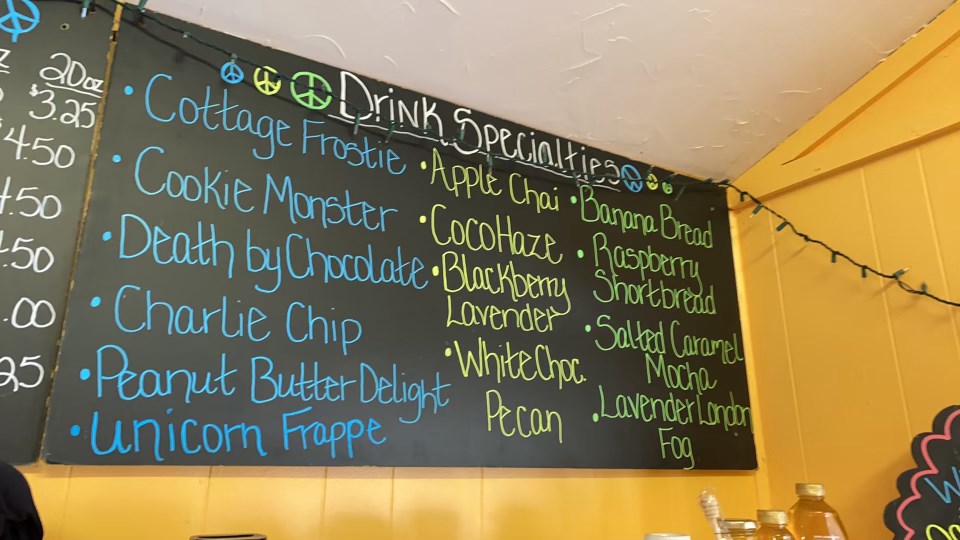 20oz
$3.25
4.50
4.50
.50
.00
25
Drink Specialties
• Cottage Frostie
• Cookie Monster
• Death by Chocolate
• Charlie Chip
• Peanut Butter Delight
• Unicorn Frappe
• Apple Chai
• CocoHaze
• Blackberry
Lavender
• White Choc.
Pecan
• Banana Bread
• Raspberry
Shortbread
• Salted Caramel
Mocha
• Lavender London
Fog